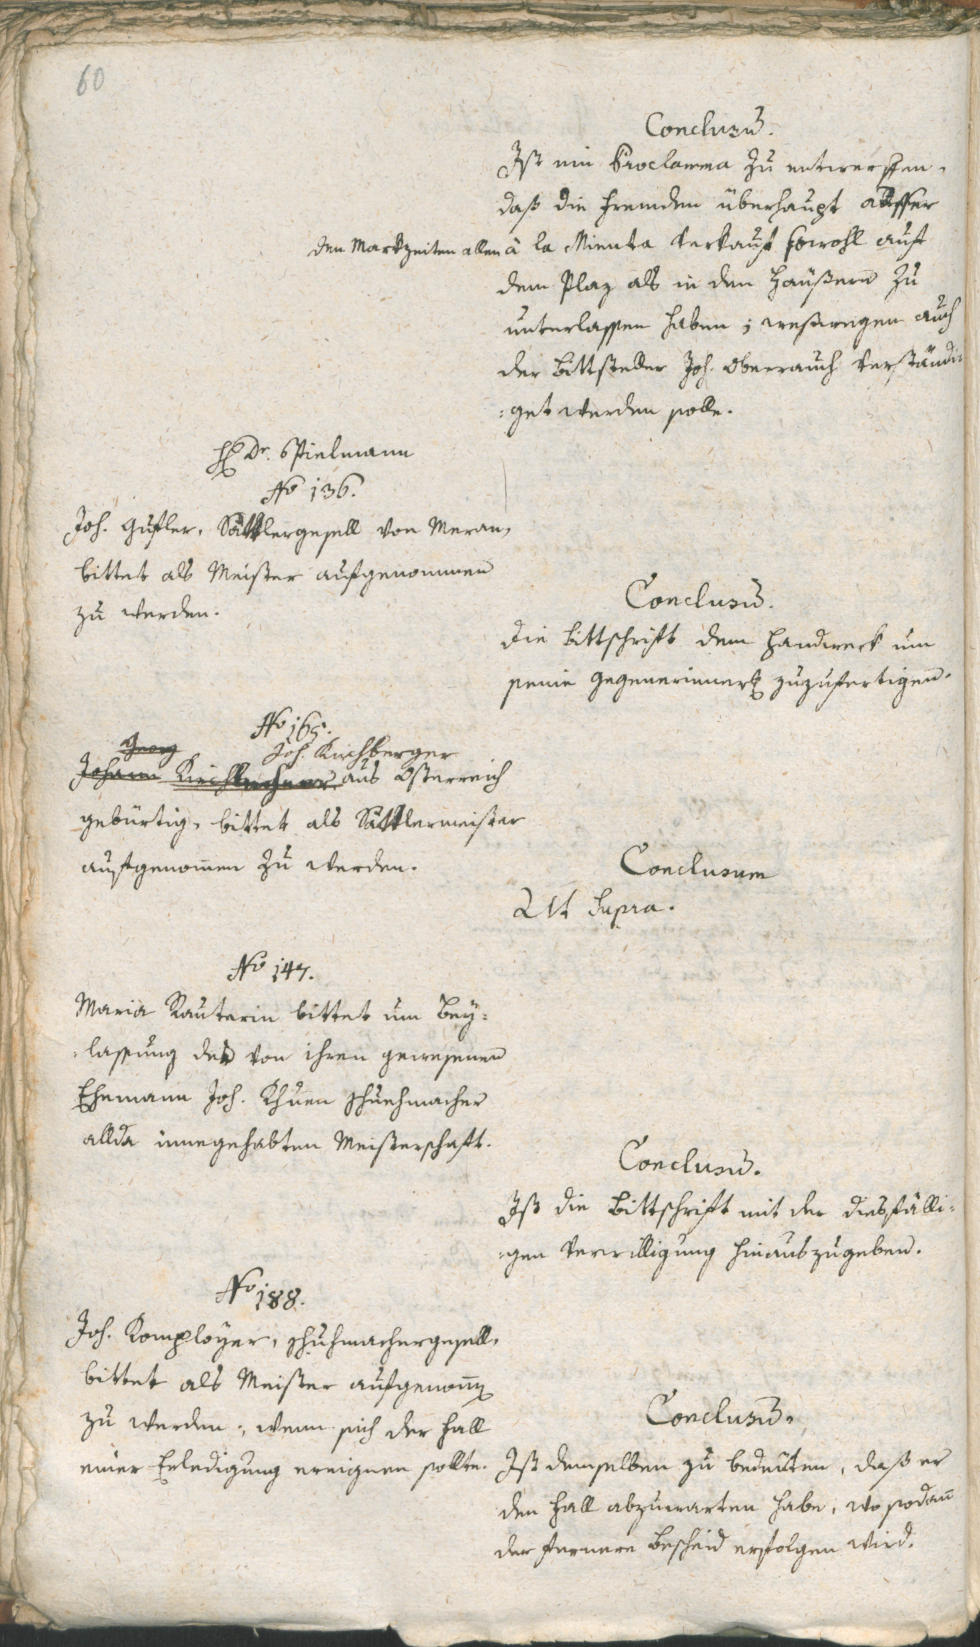 60
Conclusũ.
Ist ein Proclama zu entwerffen,
daß die Fremden überhaupt ausser
den Markzeiten allen à la Minuta Verkauf sowohl auf
dem Plaz als in den Häußern zu
unterlassen haben; weßwegen auch
der Bittsteller Joh. Oberrauch verständi-
:get werden solle.
H Dr. Spielmann
No 136.
Joh. Gufler, Sattlergesell von Meran,
bittet als Meister aufgenommen
zu werden.
Conclusũ.
Die Bittschrift dem Handwerk um
seine Gegenerinner zuzufertigen.
No 165.
Georg Joh. Kirchberger
Johann Kirchlechner aus Österreich
gebürtig, bittet als Sattlermeister
aufgenom̄en zu werden.
Conclusum
Ut supra.
No 147.
Maria Rauterin bittet um Bey:
:lassung der von ihren gewesenen
Ehemann Joh. Khuen Schuehmacher
allda innegehabten Meisterschaft.
Conclusũ.
Ist die Bittschrift mit der diesfälli:
:gen Verwilligung hinauszugeben.
No 188.
Joh. Komployer, Schuhmachergesell,
bittet als Meister aufgenom̄
zu werden, wenn sich der Fall
einer Erledigung ereignen sollte.
Conclusũ.
Ist demselben zu bedeuten, daß er
den Fall abzuwarten habe, wo sodan̄
der fernere Bescheid erfolgen wird.